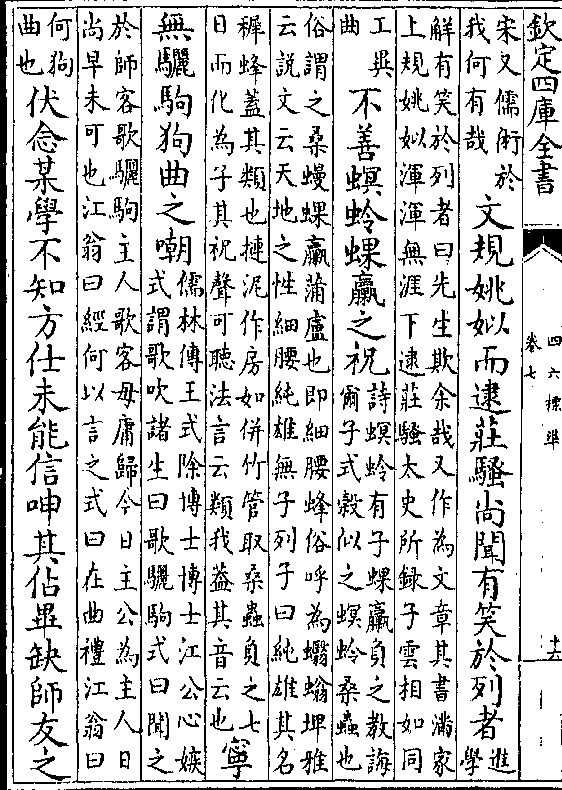 欽定四庫全書
四六標準
卷七
十六
宋又儒術於
我何有哉
文規姚姒而逮莊騷尚聞有笑於列者
進
學
解有笑於列者曰先生欺余哉又作為文章其書滿家
上規姚姒渾渾無涯下逮莊騷太史所録子雲相如同
工異
曲
不善螟蛉蜾蠃之祝
詩螟蛉有子蜾蠃負之教誨
爾子式穀似之螟蛉桑蟲也
俗謂之桑蟃蜾蠃蒲盧也即細腰蜂俗呼為蠮螉埤雅
云説文云天地之性細腰純雄無子列子曰純雄其名
穉蜂蓋其類也摙泥作房如併竹管取桑蟲負之七
日而化為子其祝聲可聽法言云類我蓋其音云也
寧
無驪駒狗曲之嘲
儒林傳王式除博士博士江公心嫉
式謂歌吹諸生曰歌驪駒式曰聞之
於師客歌驪駒主人歌客毋庸歸今日主公為主人日
尚早未可也江翁曰經何以言之式曰在曲禮江翁曰
何狗
曲也
伏念某學不知方仕未能信呻其佔畢缺師友之